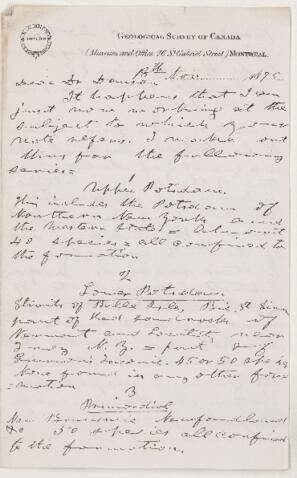 GEOLOGICAL SURVEY OF CANADA
(Museum and Office, 76 St Gabriel Street) MONTREAL.
Nov 187
Dear Dr Dawson
It happens that I am
just now working at the
subject to which your
note refers. I make out
thus far the following
series=
1
Upper Potsdam.
This includes the Potsdam of
Northern New York and
the Western States= About
40 species= all confined to
the formation
2
Lower Potsdam
Straits of Belle Isle, Bic, St Simon
part of Red Sandrock of
Vermont and
N. Y. = part of
Emmons's Taconic. 45 or 50 species
None found in any other for-
-mation
3
Primordial
New Brunswick Newfoundland
40 to 50 species all confined
to the formation.